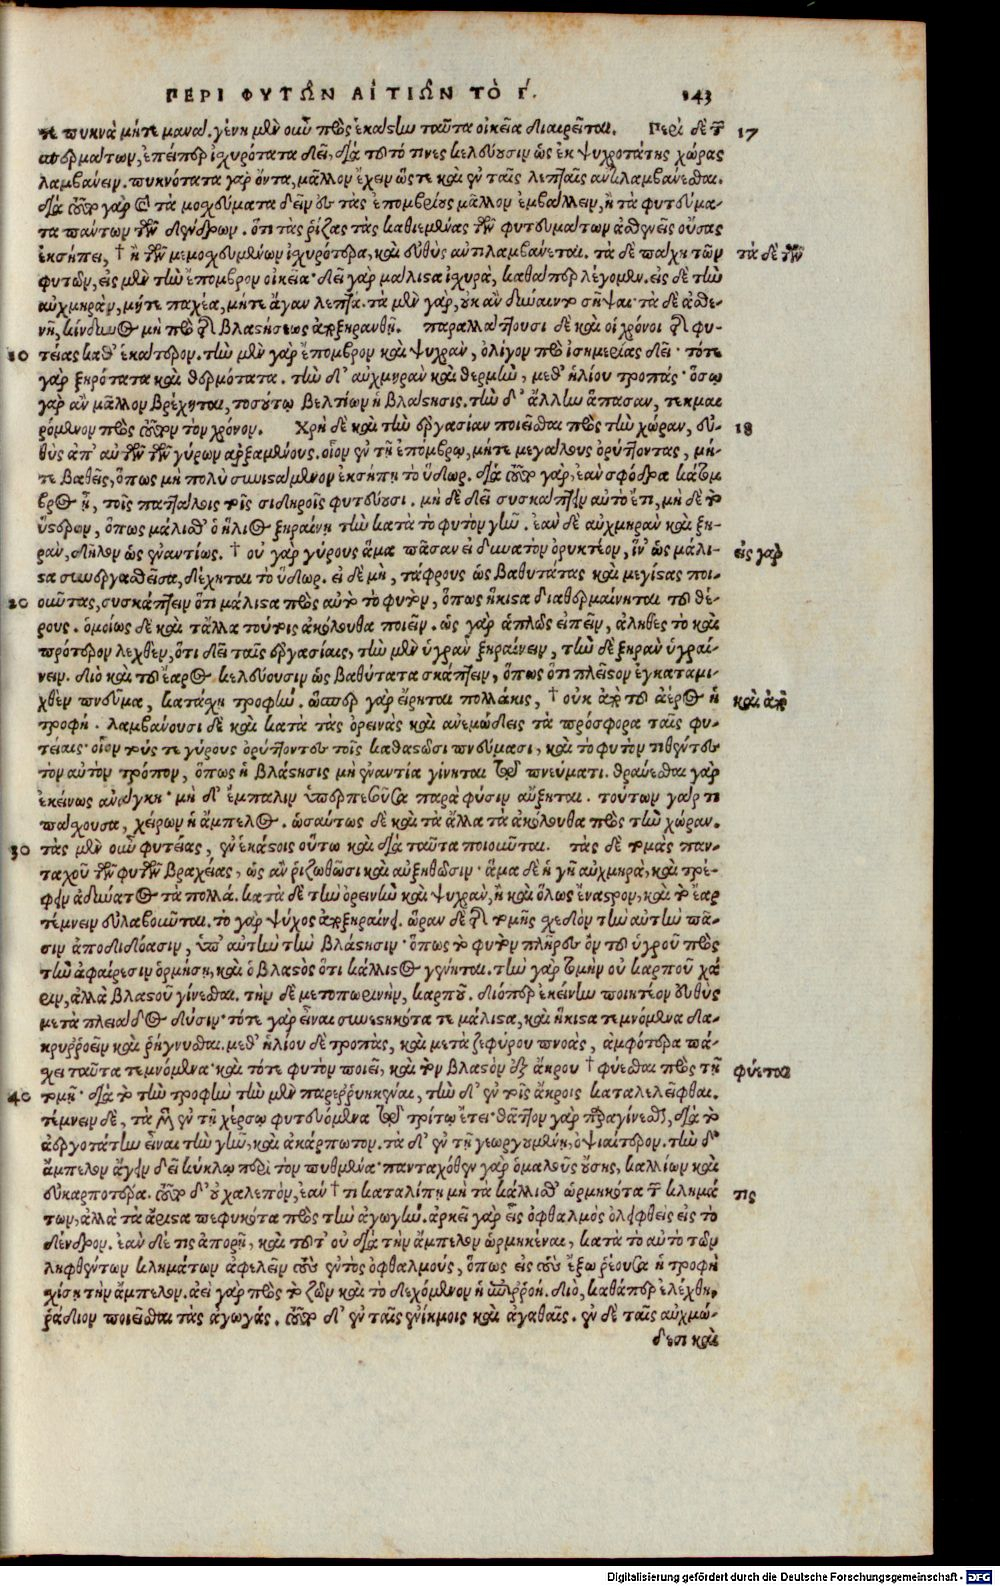 ΠΕΡΙ ΦΥΤῶΝ ΑἰΤΙῶΝ ΤὸΓ΄. 143
τε πυκνὰ μήτε μαναί. γένη μὲν οὖν πρὸς ἑκάστην ταῦτα οἰκεῖα διαιρεῖται. Περὶ δὲ τῶν 17
σπερμάτων, ἐπείπερ ἰσχυρότατα δεῖ, διὰ τοῦτό τινες κελεύουσιν ὡς ἐκ ψυχροτάτης χώρας
λαμβάνειν. πυκνότατα γὰρ ὄντα, μᾶλλον ἔχειν ὥστε καὶ ἐν ταῖς λεπταῖς ἀντιλαμβάνεσθαι.
διὰ τοῦτο γὰρ καὶ τὰ μοσχεύματα δεῖν εἰς τὰς ἐπομβρίους μᾶλλον ἐμβάλλειν, ἢ τὰ φυτεύμα-
τα πάντων τῶν δένδρων. ὅτι τὰς ῥίζας τὰς καθιεμένας τῶν φυτευμάτων ἀσθενεῖς οὔσας
ἐκσήπει, † ἢ τῶν μεμοσχευμένων ἰσχυρότερα, καὶ εὐθὺς ἀντιλαμβάνεται. τὰ δὲ πάχη τῶν τὰ δὲ τῶν
φυτῶν, εἰς μὲν τὴν ἔπομβρον οἰκεῖα· δεῖ γὰρ μάλιστα ἰσχυρὰ, καθάπερ λέγομεν. εἰς δὲ τὴν
αὐχμηρὰν, μήτε παχέα, μήτε ἄγαν λεπτά. τὰ μὲν γὰρ, οὐκ ἂν δύναιντο σῆψαι· τὰ δὲ ἀσθε-
νῆ, κίνδυνος μὴ πρὸ τῆς βλαστήσεως ἀποξηρανθῇ. παραλλάττουσι δὲ καὶ οἱ χρόνοι τῆς φυ-
10 τείας καθ' ἑκάτερον. τὴν μὲν γὰρ ἔπομβρον καὶ ψυχρὰν, ὀλίγον πρὸ ἰσημερίας δεῖ· τότε
γὰρ ξηρότατα καὶ θερμότατα. τὴν δ' αὐχμηρὰν καὶ θερμὴν, μεθ' ἡλίου τροπάς· ὅσῳ
γὰρ ἂν μᾶλλον βρέχηται, τοσούτῳ βελτίων ἡ βλάστησις. τὴν δ' ἄλλην ἅπασαν, τεκμαι
ρόμενον πρὸς τοῦτον τὸν χρόνον. Χρὴ δὲ καὶ τὴν ἐργασίαν ποιεῖσθαι πρὸς τὴν χώραν, εὐ- 18
θὺς ἀπ' αὐτῶν τῶν γύρων ἀρξαμένους. οἷον ἐν τῇ ἐπόμβρῳ, μήτε μεγάλους ὀρύττοντας, μή-
τε βαθεῖς, ὅπως μὴ πολὺ συνιστάμενον ἐκσήπῃ τὸ ὕδωρ. διὰ τοῦτο γὰρ, ἐὰν σφόδρα κάτομ
βρος ᾖ, τοῖς παττάλοις τοῖς σιδηροῖς φυτεύουσι. μὴ δὲ δεῖ συσκάπτειν αὐτὸ ἔτι, μὴ δὲ τὸ
ὕστερον, ὅπως μάλισθ' ὁ ἥλιος ξηραίνῃ τὴν κατὰ τὸ φυτὸν γῆν. ἐὰν δὲ αὐχμηρὰν καὶ ξη-
ρὰν, δῆλον ὡς ἐναντίως. † οὐ γὰρ γύρους ἅμα πᾶσαν εἰ δυνατὸν ὀρυκτέον, ἵν' ὡς μάλι- εἰς γὰρ
στα συνεργασθεῖσα, δέχηται τὸ ὕδωρ. εἰ δὲ μὴ, τάφρους ὡς βαθυτάτας καὶ μεγίστας ποι-
20 οῦντας, συσκάπτειν ὅτι μάλιστα πρὸς αὐτὸ τὸ φυτὸν, ὅπως ἥκιστα διαθερμαίνηται τοῦ θέ-
ρους. ὁμοίως δὲ καὶ τἄλλα τούτοις ἀκόλουθα ποιεῖν. ὡς γὰρ ἁπλῶς εἰπεῖν, ἀληθὲς τὸ καὶ
πρότερον λεχθὲν, ὅτι δεῖ ταῖς ἐργασίαις, τὴν μὲν ὑγρὰν ξηραίνειν, τὴν δὲ ξηρὰν ὑγραί-
νειν. διὸ καὶ τοῦ ἔαρος κελεύουσιν ὡς βαθύτατα σκάπτειν, ὅπως ὅτι πλεῖστον ἐγκαταμι-
χθὲν πνεῦμα, κατάχῃ τροφήν. ὥσπερ γὰρ εἴρηται πολλάκις, † οὐκ ἀπὸ τοῦ ἀέρος ἡ καὶ ἀπὸ
τροφή. λαμβάνουσι δὲ καὶ κατὰ τὰς ὀρεινὰς καὶ ἀνεμώδεις τὰ πρόσφορα ταῖς φυ-
τείαις· οἷον τούς τε γύρους ὀρύττοντες τοῖς καθεστῶσι πνεύμασι, καὶ τὸ φυτὸν τιθέντες
τὸν αὐτὸν τρόπον, ὅπως ἡ βλάστησις μὴ ἐναντία γίνηται τῷ πνεύματι. θραύεσθαι γὰρ
ἐκείνως ἀνάγκη· μὴ δ' ἔμπαλιν ὑποτρέπουσα παρὰ φύσιν αὔξηται. τούτων γάρ τι
πάσχουσα, χείρων ἡ ἄμπελος. ὡσαύτως δὲ καὶ τὰ ἄλλα τὰ ἀκόλουθα πρὸς τὴν χώραν.
30 τὰς μὲν οὖν φυτείας, ἐν ἑκάστοις οὕτω καὶ διὰ ταῦτα ποιοῦνται. τὰς δὲ τομὰς παν-
ταχοῦ τῶν φυτῶν βραχείας, ὡς ἂν ῥιζωθῶσι καὶ αὐξηθῶσιν· ἅμα δὲ ἡ γῆ αὐχμηρὰ, καὶ τρέ-
φειν ἀδύνατος τὰ πολλά. κατὰ δὲ τὴν ὀρεινὴν καὶ ψυχρὰν, ἢ καὶ ὅλως ἔναστρον, καὶ τὸ ἔαρ
τέμνειν εὐλαβοῦνται. τὸ γὰρ ψύχος ἀποξηραίνει. ὥραν δὲ τῆς τομῆς σχεδὸν τὴν αὐτὴν πᾶ-
σιν ἀποδιδόασιν, ὑπ' αὐτὴν τὴν βλάστησιν· ὅπως τὸ φυτὸν πλῆρες ὂν τοῦ ὑγροῦ πρὸς
τὴν ἀφαίρεσιν ὁρμήσῃ, καὶ ὁ βλαστὸς ὅτι κάλλιστος γένηται. τὴν γὰρ τομὴν οὐ καρποῦ χά
ριν, ἀλλὰ βλαστοῦ γίνεσθαι. τὴν δὲ μετοπωρινὴν, καρποῦ. διόπερ ἐκείνην ποιητέον εὐθὺς
μετὰ πλειάδος δύσιν· τότε γὰρ εἶναι συνεστηκότα τε μάλιστα, καὶ ἥκιστα τεμνόμενα δα-
κρυρροεῖν καὶ ῥήγνυσθαι. μεθ' ἡλίου δὲ τροπὰς, καὶ μετὰ ζεφύρου πνοὰς, ἀμφότερα πά-
σχει ταῦτα τεμνόμενα· καὶ τότε φυτὸν ποιεῖ, καὶ τὸν βλαστὸν ἐξ ἄκρου † φύεσθαι πρὸς τῇ φύεται
40 τομῇ· διὰ τὸ τὴν τροφὴν τὴν μὲν παρερρυηκέναι, τὴν δ' ἐν τοῖς ἄκροις καταλελεῖφθαι.
τέμνειν δὲ, τὰ μὲν ἐν τῇ χέρσῳ φυτευόμενα τῷ τρίτῳ ἔτει· θᾶττον γὰρ παραγίνεσθαι, διὰ τὸ
ἀεργοτάτην εἶναι τὴν γῆν, καὶ ἀκάρπωτον. τὰ δ' ἐν τῇ γεωργουμένῃ, ὀψιαίτερον. τὴν δ'
ἄμπελον ἄγειν δεῖ κύκλῳ περὶ τὸν πυθμένα· πανταχόθεν γὰρ ὁμαλοῦς οὔσης, καλλίων καὶ
εὐκαρποτέρα. τοῦτο δ' οὐ χαλεπὸν, ἐάν † τι καταλίπῃ μὴ τὰ κάλλισθ' ὡρμηκότα τῶν κλημά τις
των, ἀλλὰ τὰ ἄριστα πεφυκότα πρὸς τὴν ἀγωγήν. ἀρκεῖ γὰρ εἷς ὀφθαλμὸς ὀλειφθεὶς εἰς τὸ
δένδρον. ἐὰν δέ τις ἀπορῇ, καὶ τοῦτ' οὐ διὰ τὴν ἄμπελον ὡρμηκέναι, κατὰ τὸ αὐτὸ τῶν
ληφθέντων κλημάτων ἀφελεῖν τοὺς ἐντὸς ὀφθαλμούς, ὅπως εἰς τοὺς ἔξω ῥέουσα ἡ τροφὴ
σχίσῃ τὴν ἄμπελον. ἀεὶ γὰρ πρὸς τὸ ζῶν καὶ τὸ δεχόμενον ἡ ἐπιρροή. διὸ, καθάπερ ἐλέχθη,
ῥάδιον ποιεῖσθαι τὰς ἀγωγάς. τοῦτο δ' ἐν ταῖς ἐνίκμοις καὶ ἀγαθαῖς. ἐν δὲ ταῖς αὐχμώ-
δεσι καὶ
Digitalisierung gefördert durch die Deutsche Forschungsgemeinschaft - DFG